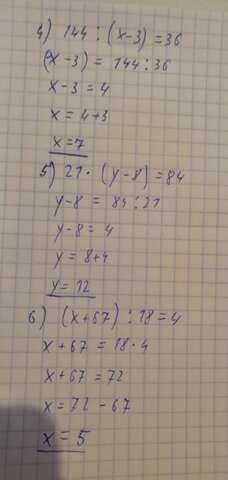 4) 144 : (x-3) = 36
(x-3) = 144 : 36
x-3 = 4
x = 4+3
x = 7
5) 21 · (y-8) = 84
y-8 = 84 : 21
y-8 = 4
y = 8+4
y = 12
6) (x+67) : 18 = 4
x+67 = 18 · 4
x+67 = 72
x = 72 - 67
x = 5